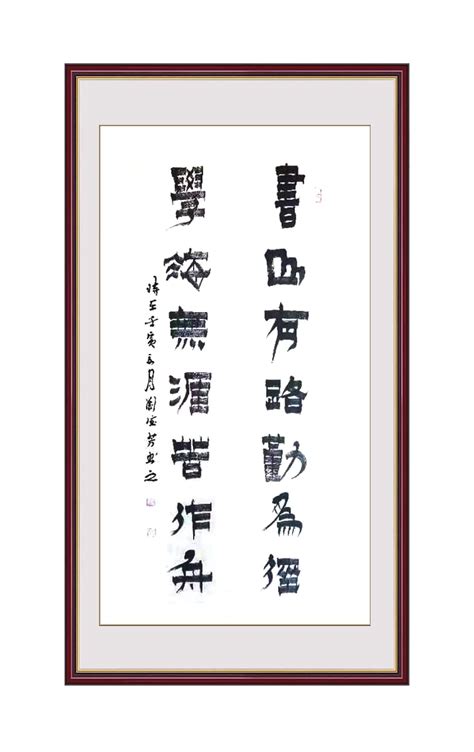 書山有路勤為徑
學海無涯苦作舟
時在壬寅 月 芳書之